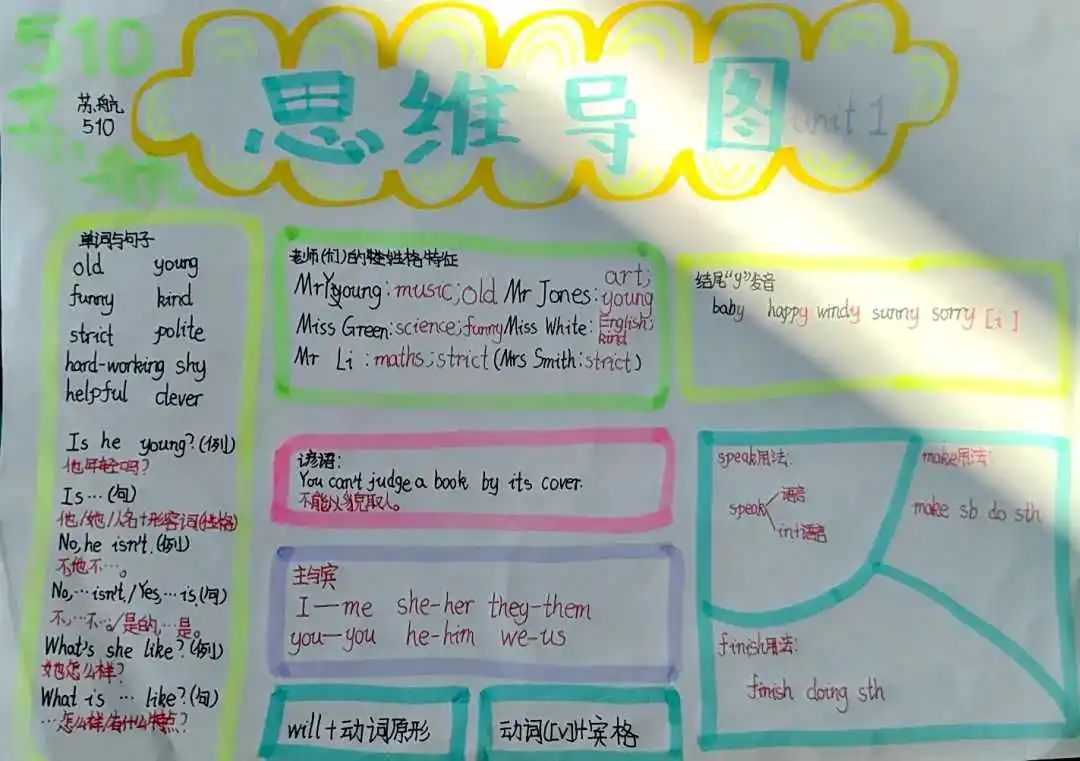 510
苏航
苏航
510
思维导图
Unit 1
单词与句子
old young
funny kind
strict polite
hard-working shy
helpful clever
Is he young?(例)
他年轻吗?
Is…(句)
他/她/人名+形容词(性格)
No, he isn't.(例)
不,他不…。
No,…isn't./Yes,…is.(句)
不,…不…。/是的,…是。
What's she like?(例)
她怎么样?
What is … like?(句)
…怎么样,有什么特点?
老师(们)的性格特征
Mr Young: music; old Mr Jones: art; young
Miss Green: science; funny Miss White: English; kind
Mr Li: maths; strict (Mrs Smith: strict)
结尾"y"发音
baby happy windy sunny sorry [i]
谚语:
You can't judge a book by its cover.
不能以貌取人。
主与宾
I—me she-her they-them
you—you he-him we-us
will+动词原形
动词(v)+宾格
speak用法:
speak
语言
in+语言
make用法:
make sb do sth
finish用法:
finish doing sth